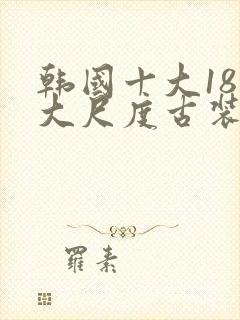 韩国十大18
大尺度古装
羅素